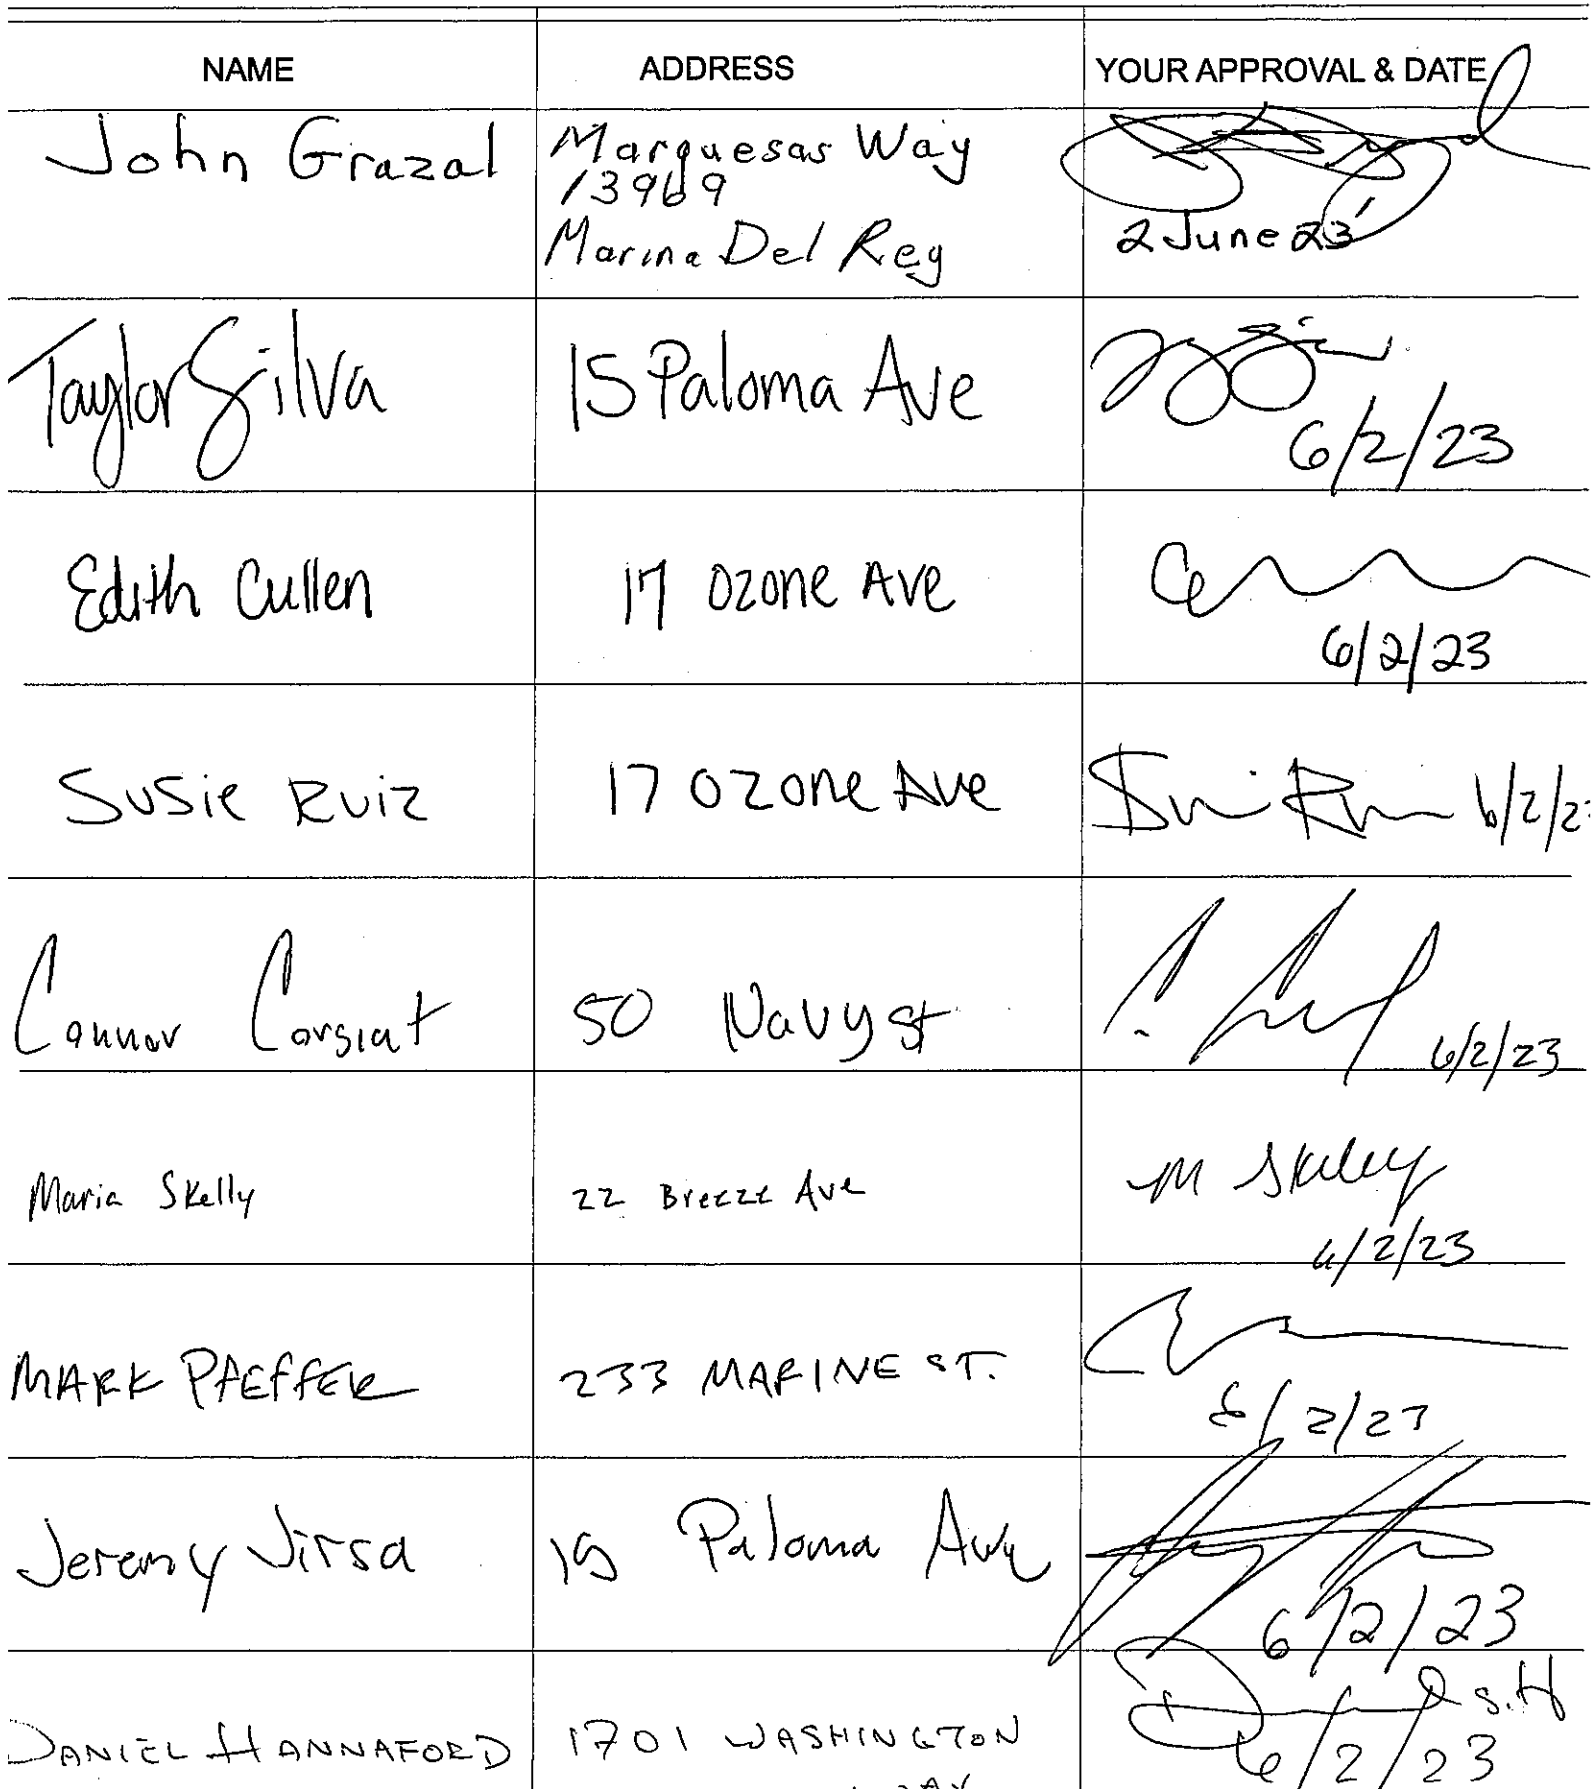 NAME ADDRESS YOUR APPROVAL & DATE
John Grazal Marquesas Way
13969
Marina Del Rey 2 June 23'
Taylor Silva 15 Paloma Ave
6/2/23
Edith Cullen 17 Ozone Ave
6/2/23
Susie Ruiz 17 Ozone Ave 6/2/2
Connor Corsiat 50 Navy st 6/2/23
Maria Skelly 22 Breeze Ave M Skelly
6/2/23
MARK PFEFFER 233 MARINE ST.
6/2/23
Jeremy Jirsa 15 Paloma Ave
6/2/23
DANIEL HANNAFORD 1701 WASHINGTON S.H
WAY 6/2/23